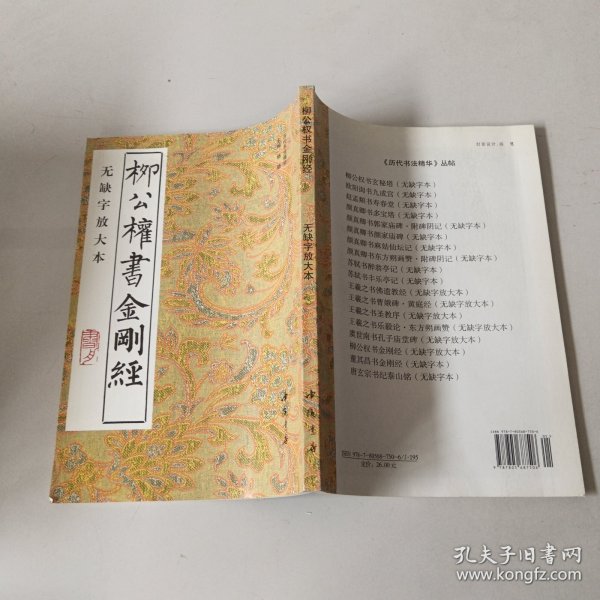 柳公權書金剛經
无缺字放大本
柳公权书金刚经
无缺字放大本
中国书店
中国书店
《历代书法精华》丛帖
柳公权书玄秘塔（无缺字本）
欧阳询书九成宫（无缺字本）
赵孟頫书寿春堂（无缺字本）
颜真卿书多宝塔（无缺字本）
颜真卿书郭家庙碑·附碑阴记（无缺字本）
颜真卿书颜家庙碑（无缺字本）
颜真卿书麻姑仙坛记（无缺字本）
颜真卿书东方朔画赞·附碑阴记（无缺字本）
苏轼书醉翁亭记（无缺字本）
苏轼书丰乐亭记（无缺字本）
王羲之书佛遗教经（无缺字放大本）
王羲之书曹娥碑·黄庭经（无缺字放大本）
王羲之书圣教序（无缺字放大本）
王羲之书乐毅论·东方朔画赞（无缺字放大本）
虞世南书孔子庙堂碑（无缺字本）
柳公权书金刚经（无缺字放大本）
董其昌书金刚经（无缺字本）
唐玄宗书纪泰山铭（无缺字本）
ISBN 978-7-80568-750-6/J·195
定价：26.00元
ISBN 978-7-80568-750-6
9 787805 687506
孔夫子旧书网
www.kongfz.com